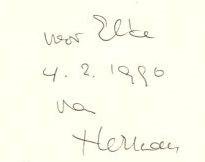 voor Elke
4.2.1990
van
Herman